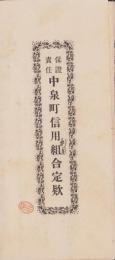 保證
責任
中泉町信用組合定款